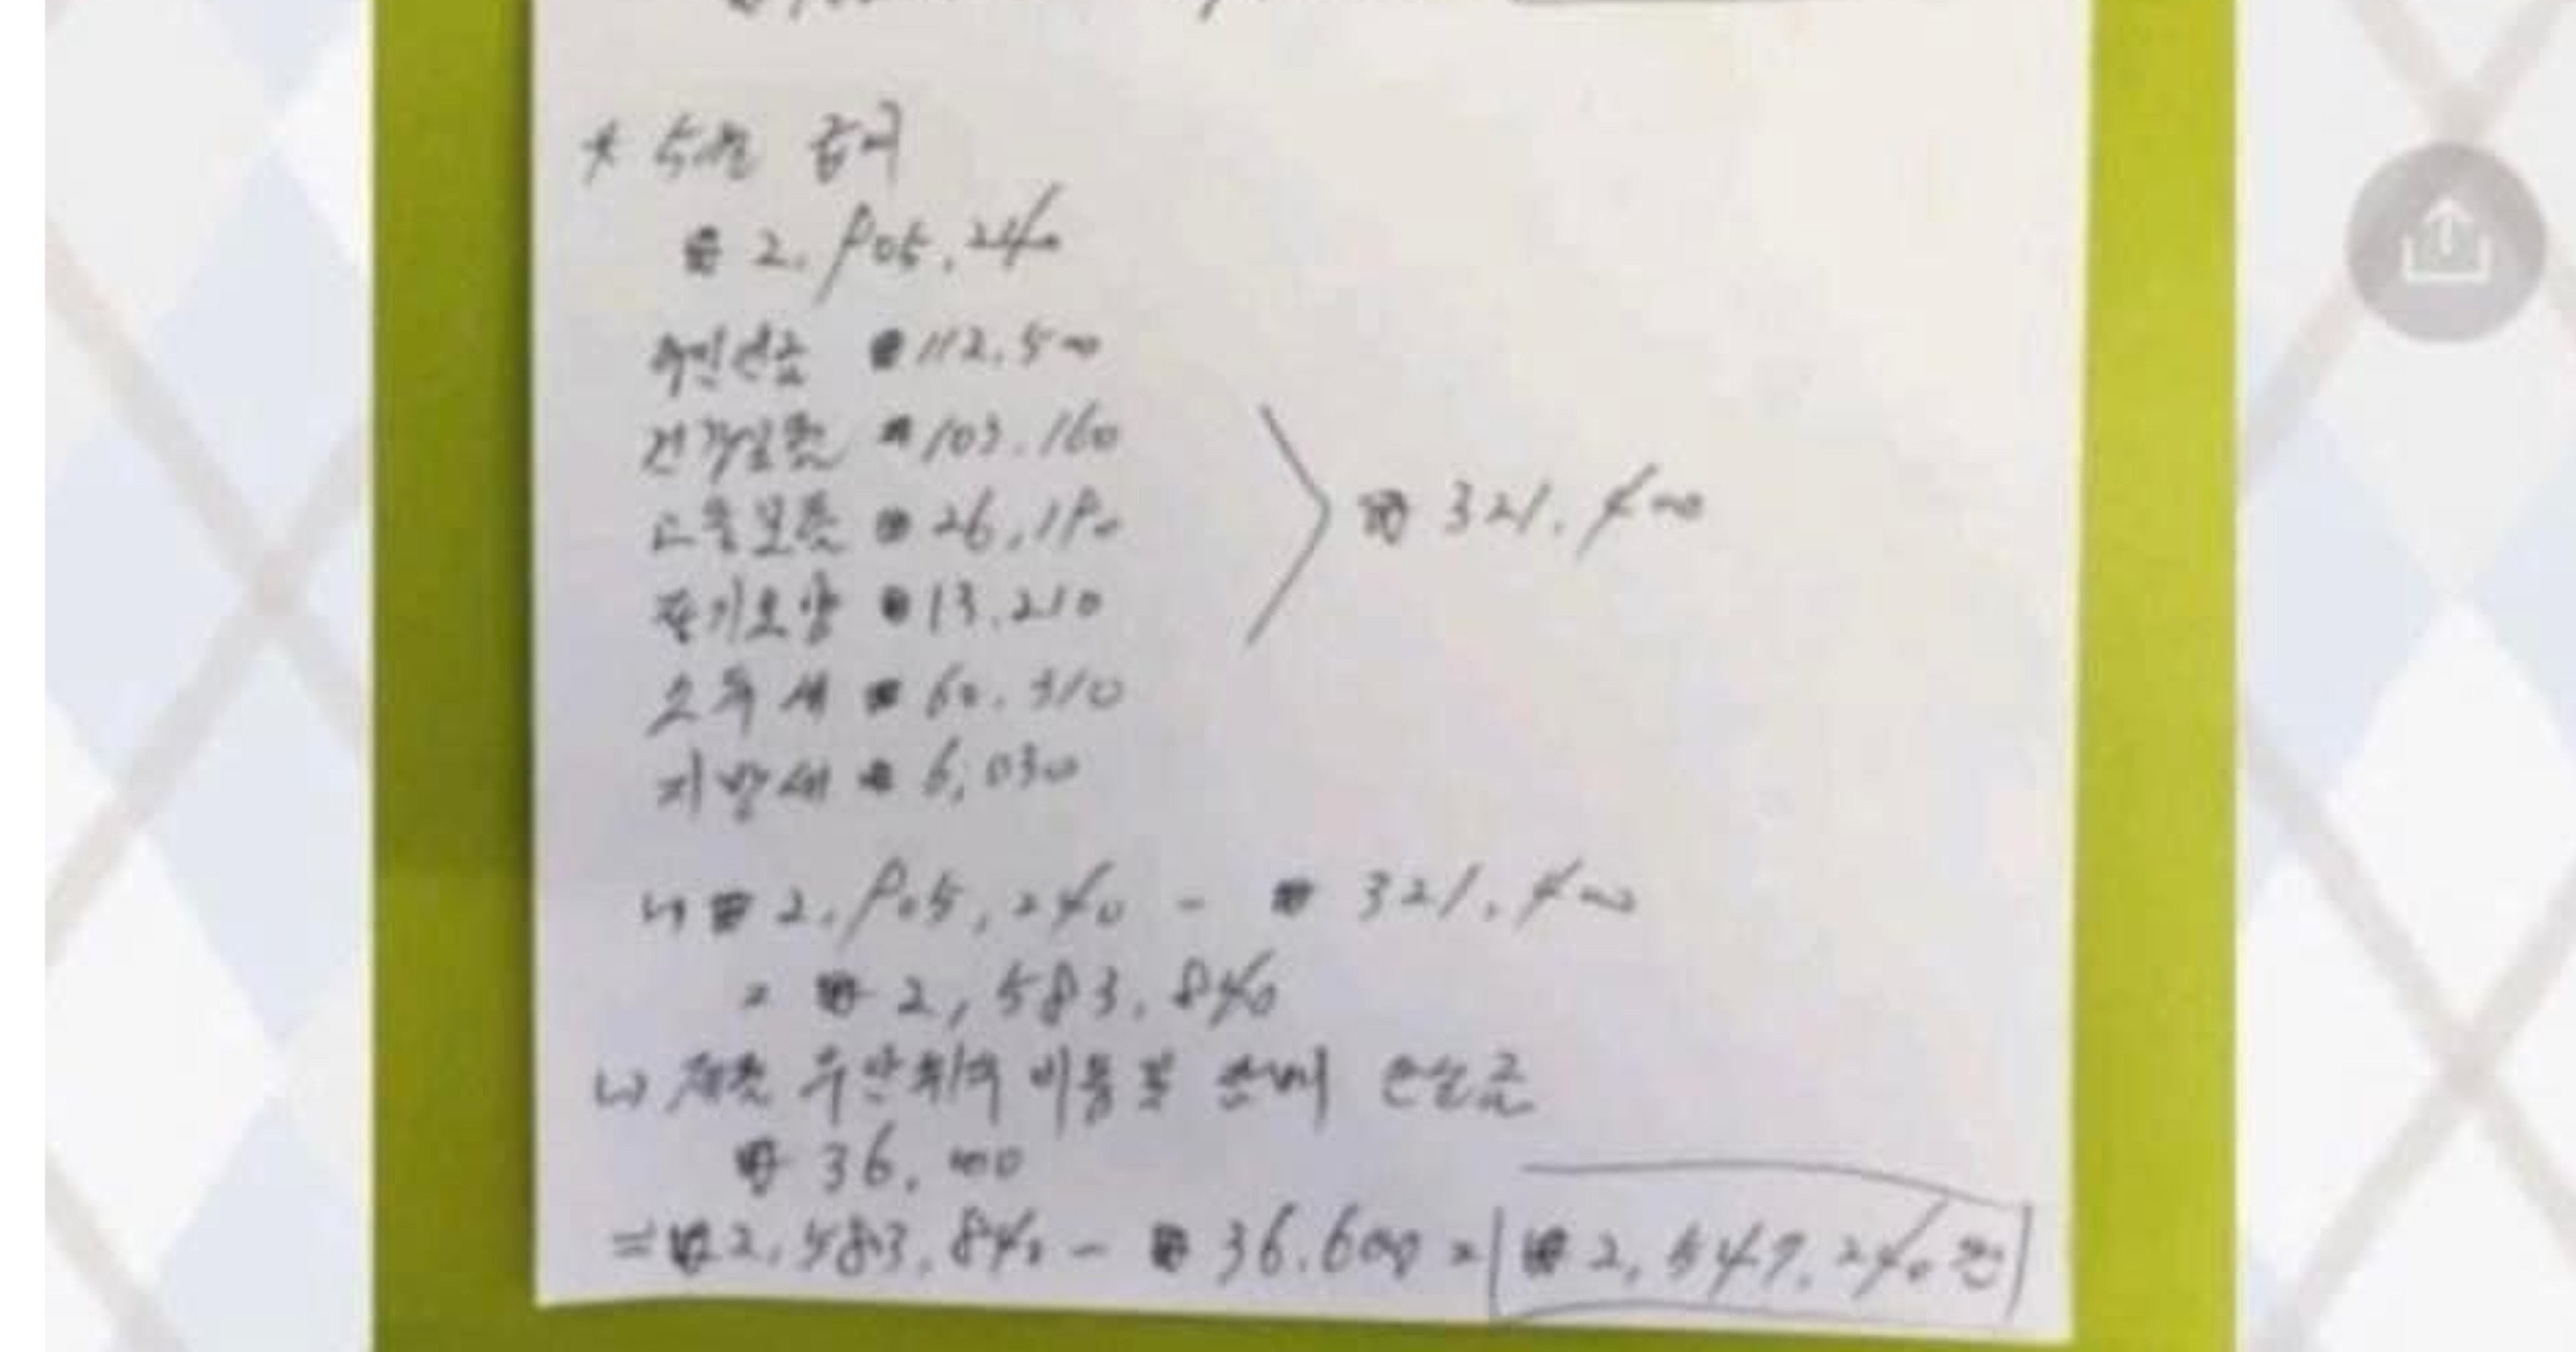 * 수령 급여
₩ 2,905,240
국민연금 ₩112,500
건강보험 ₩103,160
고용보험 ₩26,190
장기요양 ₩13,210
소득세 ₩60,310
지방세 ₩6,030
₩321,400
↳ ₩2,905,240 - ₩321,400
= ₩2,583,840
↳ 무단취식 비용 및 손실금
₩36,600
⇒ ₩2,583,840 - ₩36,600 = ₩2,547,240원